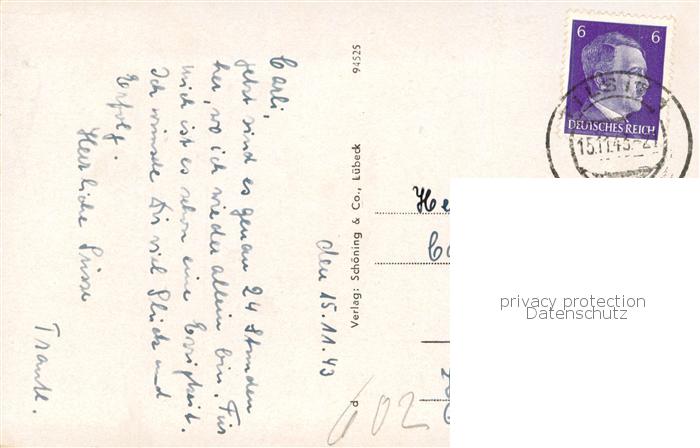 den 15.11.43
Carli,
jetzt sind es genau 24 Stunden
her, wo ich wieder allein bin. Für
mich ist es schon eine Ewigkeit.
Ich wünsche Dir viel Glück und
Erfolg.
Herzliche Grüsse
Traudl.
94525
Verlag: Schöning & Co., Lübeck
d
6 6
DEUTSCHES REICH
TILSIT
15.11.43
He
602
privacy protection
Datenschutz